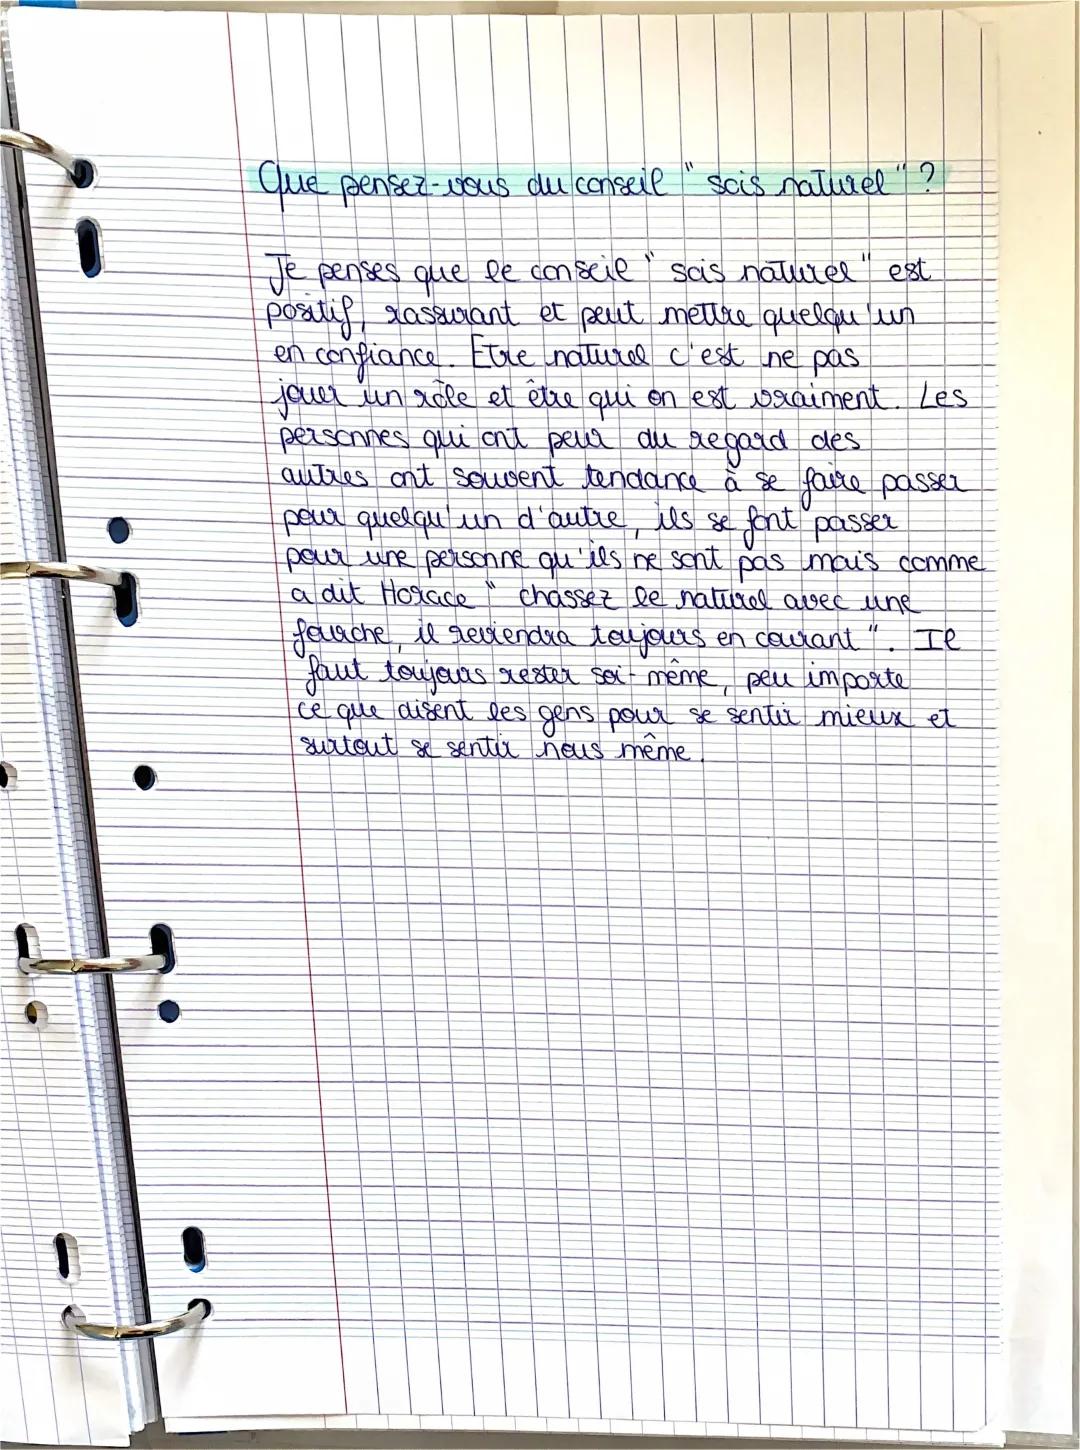 Que pensez-vous du conseil " sois naturel " ?
Je penses que le conseil " sois naturel " est
positif, rassurant et peut mettre quelqu'un
en confiance. Etre naturel c'est ne pas
jouer un rôle et être qui on est vraiment. Les
personnes qui ont peur du regard des
autres ont souvent tendance à se faire passer
pour quelqu'un d'autre, ils se font passer
pour une personne qu'ils ne sont pas mais comme
a dit Horace " chassez le naturel avec une
fourche, il reviendra toujours en courant ". Il
faut toujours rester soi-même, peu importe
ce que disent les gens pour se sentir mieux et
surtout se sentir nous même.